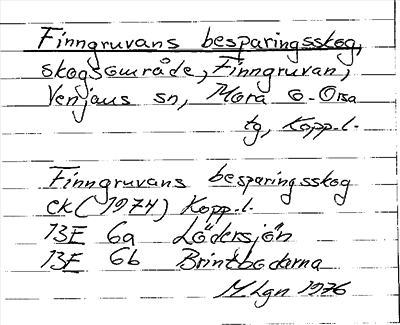 Finngruvans besparingsskog,
skogsområde, Finngruvan,
Venjans sn, Mora o. Orsa
tg, Kopp.l.
Finngruvans besparingsskog
ek (1974) Kopp.l.
13E 6a Lödersjön
13E 6b Brintbodarna
M Lgn 1976